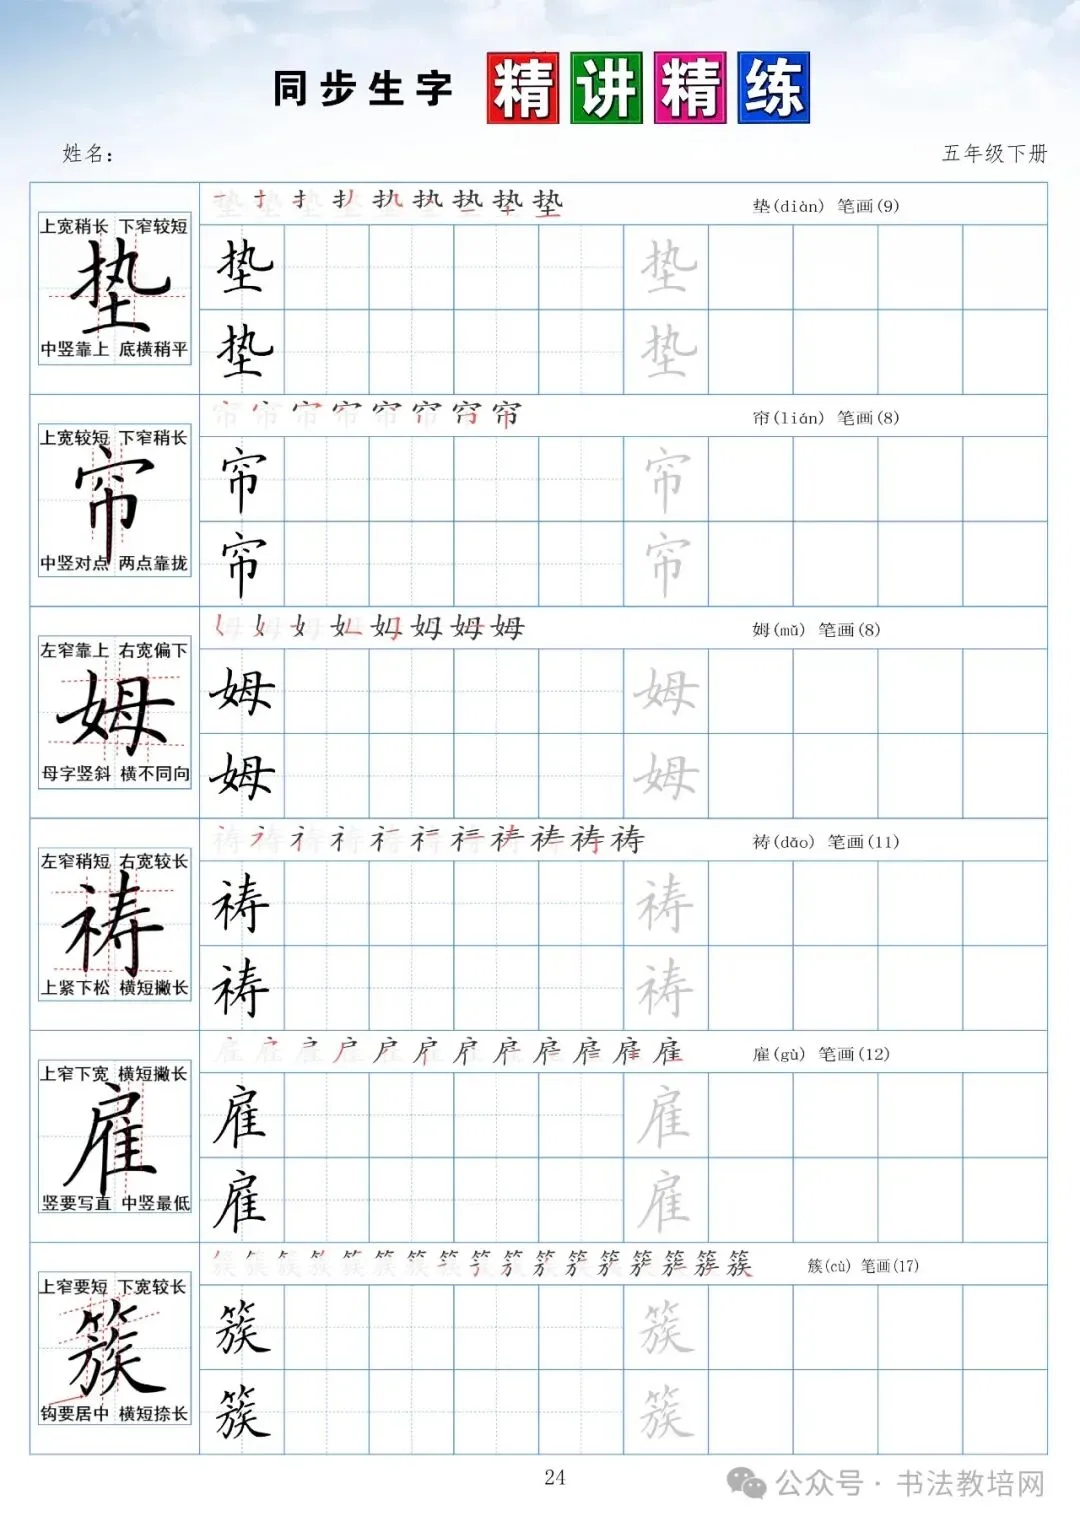 同步生字 精讲精练
姓名：
五年级下册
垫(diàn) 笔画(9)
上宽稍长 下窄较短
垫
中竖靠上 底横稍平
垫 垫
垫 垫
帘(lián) 笔画(8)
上宽较短 下窄稍长
帘
中竖对点 两点靠拢
帘 帘
帘 帘
姆(mǔ) 笔画(8)
左窄靠上 右宽偏下
姆
母字竖斜 横不同向
姆 姆
姆 姆
祷(dǎo) 笔画(11)
左窄稍短 右宽较长
祷
上紧下松 横短撇长
祷 祷
祷 祷
雇(gù) 笔画(12)
上窄下宽 横短撇长
雇
竖要写直 中竖最低
雇 雇
雇 雇
簇(cù) 笔画(17)
上窄要短 下宽较长
簇
钩要居中 横短捺长
簇 簇
簇 簇
24
公众号·书法教培网